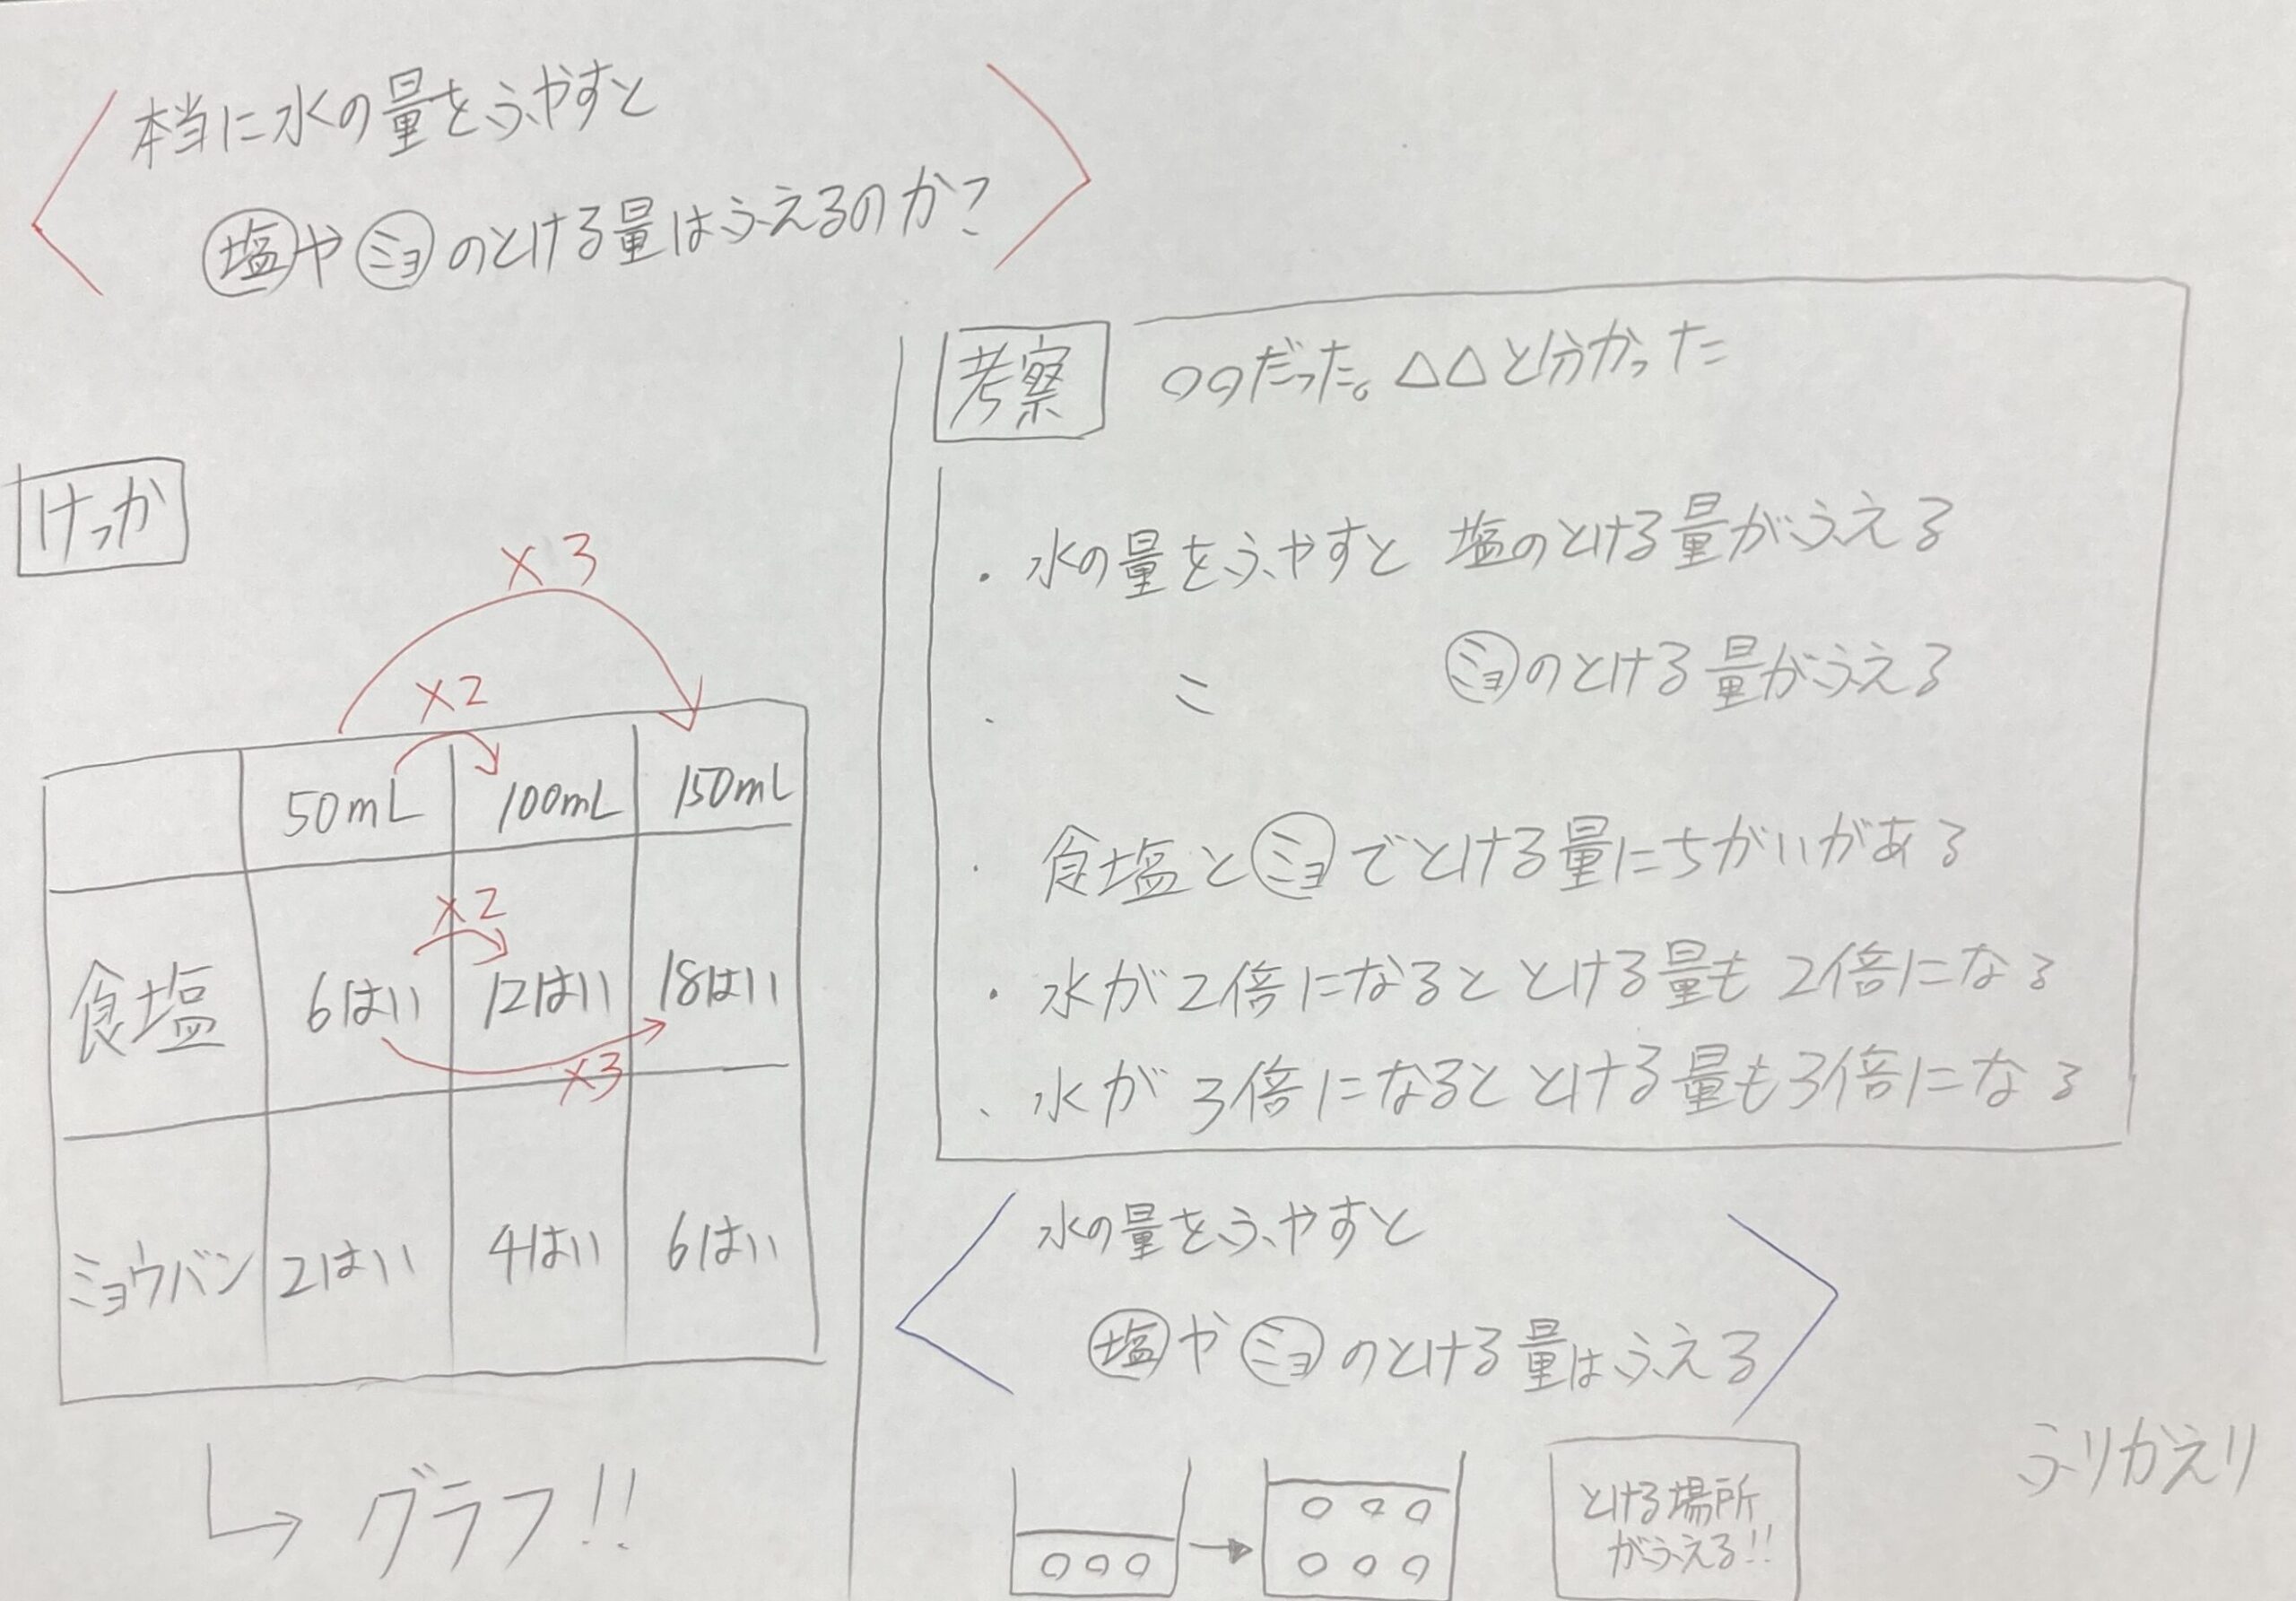 本当に水の量をふやすと
塩やミョのとける量はふえるのか?
けっか
×3
×2
50mL 100mL 150mL
×2
食塩 6はい 12はい 18はい
×3
ミョウバン 2はい 4はい 6はい
グラフ!!
考察 ○○だった。△△と分かった
・水の量をふやすと 塩のとける量がふえる
・ 〃 ミョのとける量がふえる
・食塩とミョでとける量にちがいがある
・水が2倍になると とける量も2倍になる
・水が3倍になると とける量も3倍になる
水の量をふやすと
塩やミョのとける量はふえる
とける場所
がふえる!!
ふりかえり